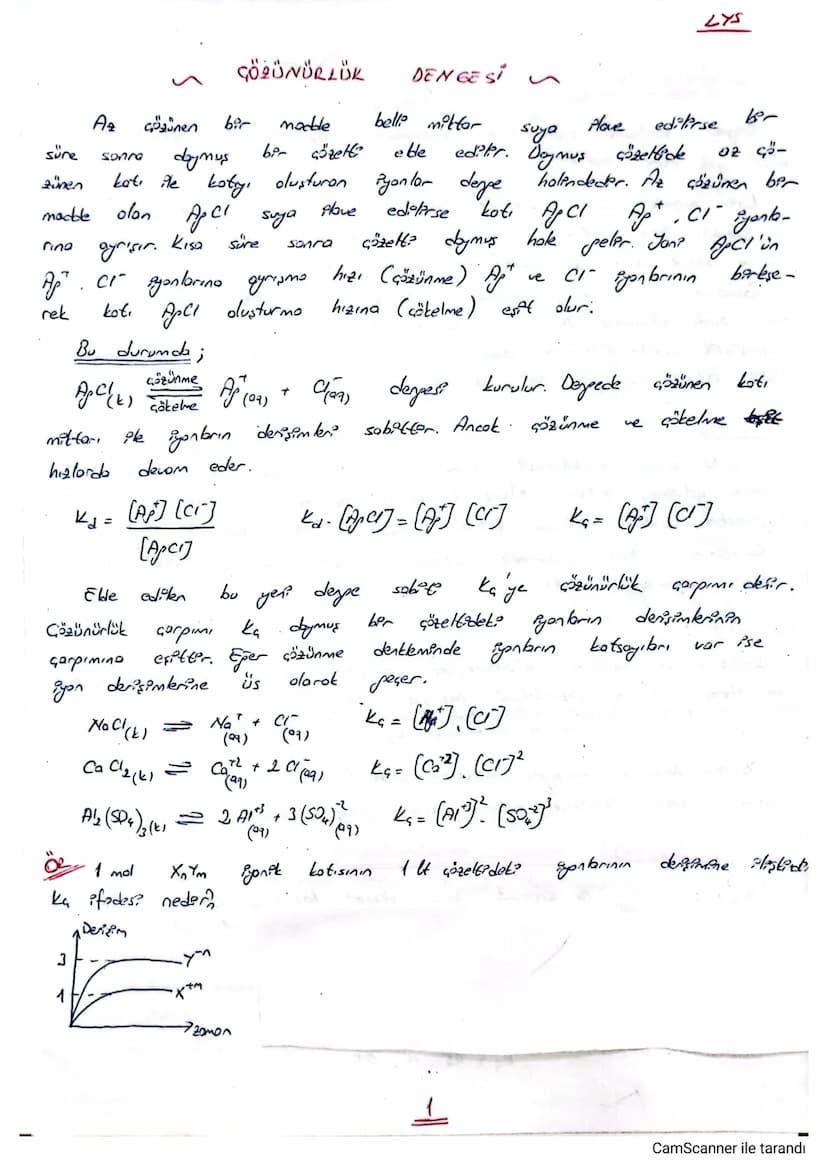 LYS
~ ÇÖZÜNÜRLÜK DENGESİ ~
Az çözünen bir madde belli miktar suya ilave edilirse bir
süre sonra doymuş bir çözelti elde edilir. Doymuş çözeltide az çö-
zünen katı ile katıyı oluşturan iyonlar denge halindedir. Az çözünen bir
madde olan AgCl suya ilave edilirse katı AgCl Ag⁺, Cl⁻ iyonla-
rına ayrışır. Kısa süre sonra çözelti doymuş hale gelir. Yani AgCl'ün
Ag⁺, Cl⁻ iyonlarına ayrışma hızı (çözünme) Ag⁺ ve Cl⁻ iyonlarının birleşe-
rek katı AgCl oluşturma hızına (çökelme) eşit olur.
Bu durumda;
AgCl(k) çözünme ⇌ çökelme Ag⁺(aq) + Cl⁻(aq) dengesi kurulur. Dengede çözünen katı
miktarı ile iyonların derişimleri sabittir. Ancak çözünme ve çökelme
hızlarda devam eder.
Kd = [Ag⁺] [Cl⁻] / [AgCl] Kd . [AgCl] = [Ag⁺] [Cl⁻] Kç = [Ag⁺] [Cl⁻]
Elde edilen bu yeni denge sabiti Kç'ye çözünürlük çarpımı denir.
Çözünürlük çarpımı Kç doymuş bir çözeltideki iyonların derişimlerinin
çarpımına eşittir. Eğer çözünme denkleminde iyonların katsayıları var ise
iyon derişimlerine üs olarak geçer.
NaCl(k) ⇌ Na⁺(aq) + Cl⁻(aq) Kç = [Na⁺] . [Cl⁻]
CaCl₂(k) ⇌ Ca⁺²(aq) + 2 Cl⁻(aq) Kç = [Ca⁺²] . [Cl⁻]²
Al₂(SO₄)₃(k) ⇌ 2 Al⁺³(aq) + 3 (SO₄)⁻²(aq) Kç = [Al⁺³]² . [SO₄⁻²]³
Ör 1 mol XnYm iyonik katısının 1 lt çözeltideki iyonlarının derişimine ilişkin
Kç ifadesi nedir?
Derişim
3 Y⁻ⁿ
1 X⁺ᵐ
zaman
1
CamScanner ile tarandı